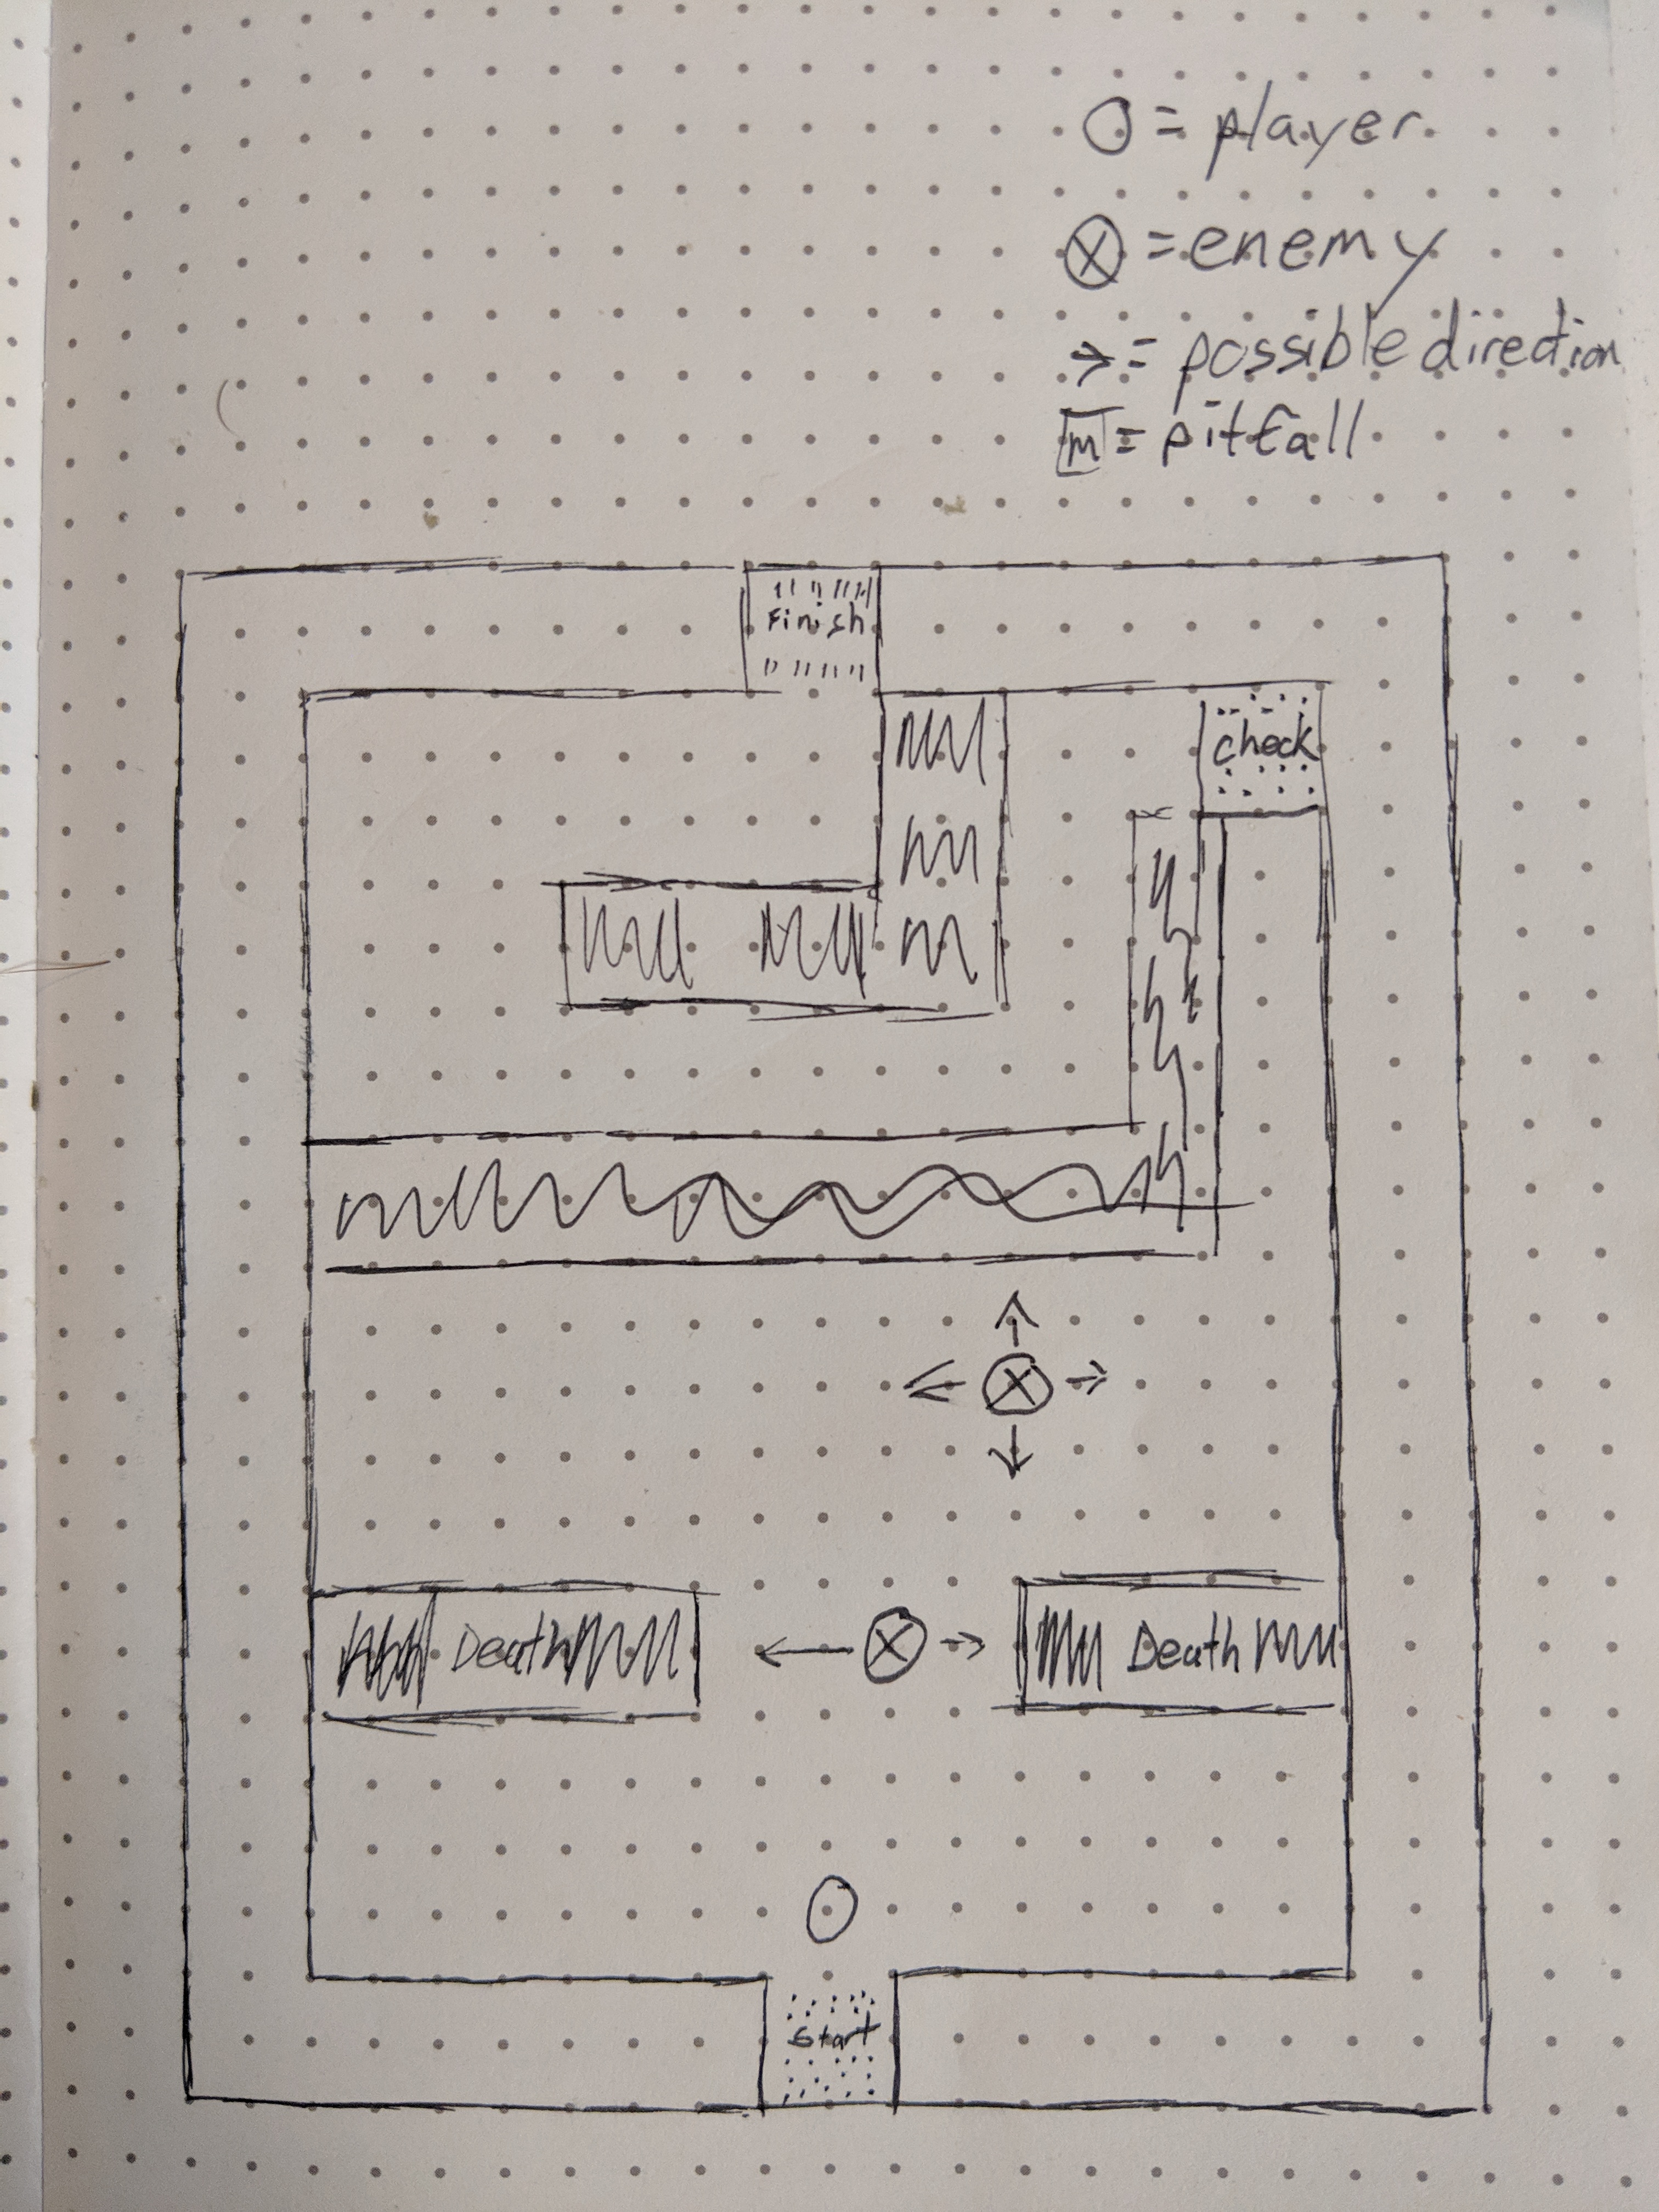 O = player
ⓧ = enemy
→ = possible direction
m = pitfall
Finish
check
Death
Death
Start